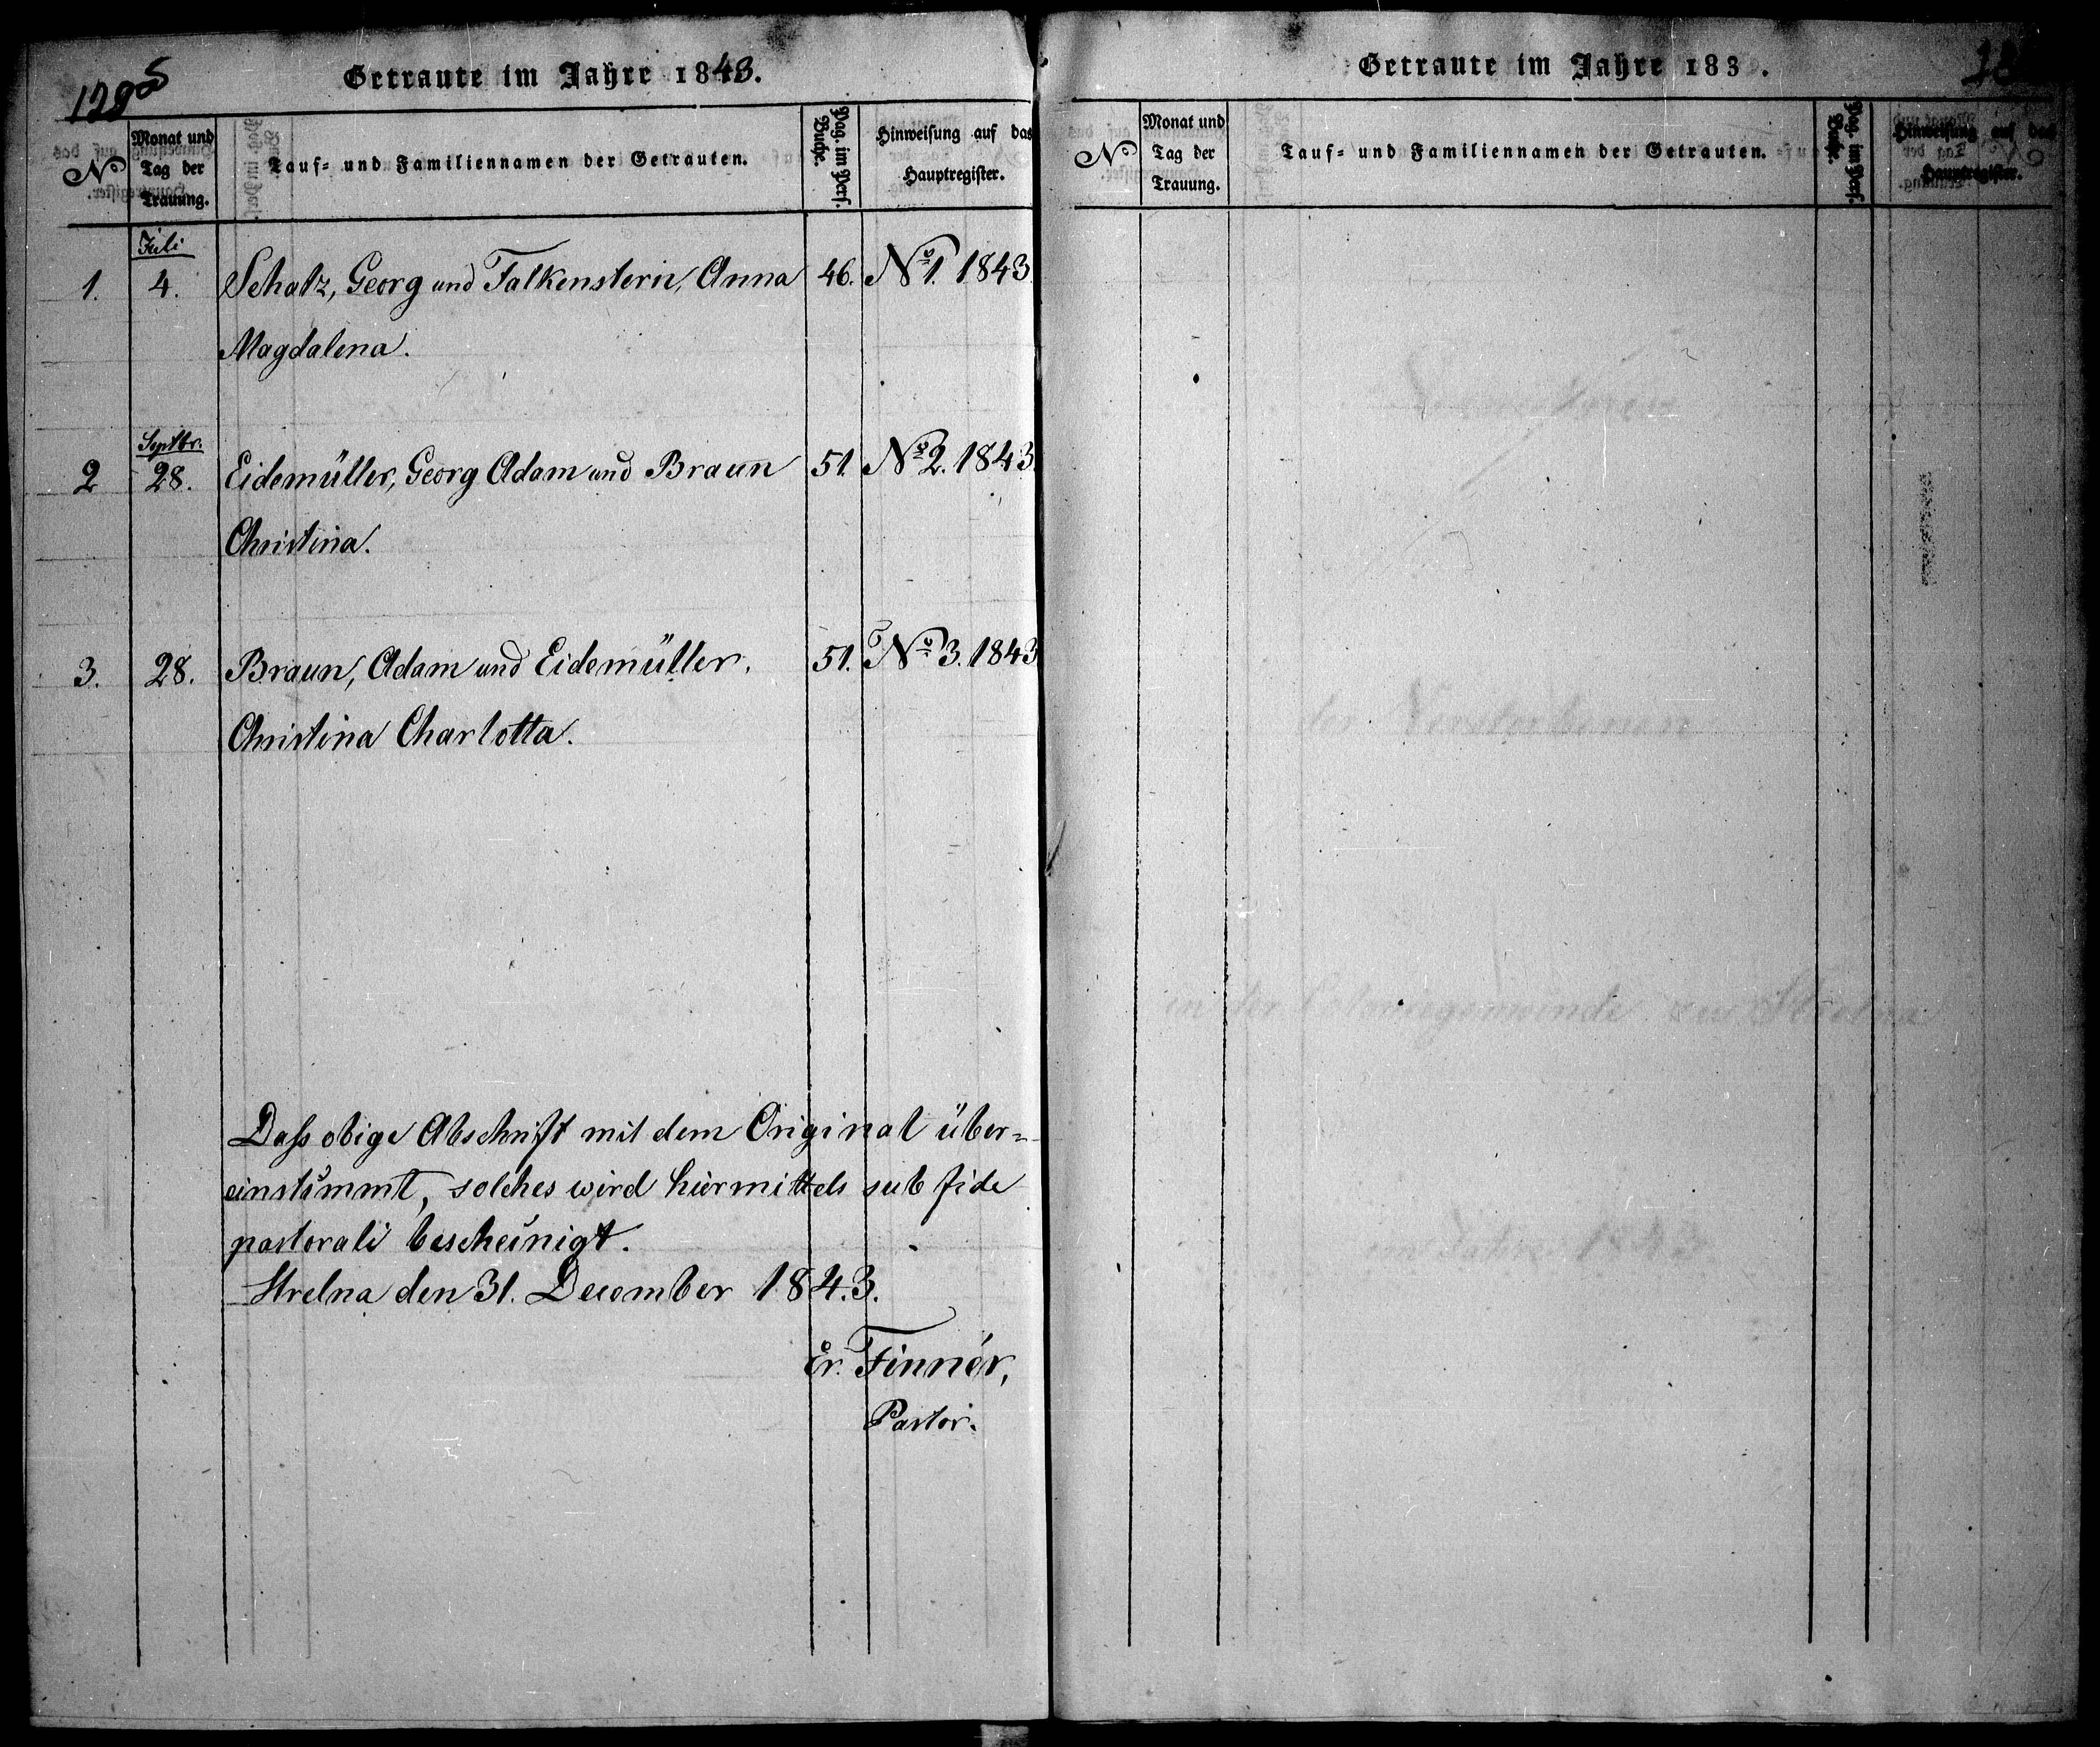 Getraute im Jahre 1843.
№
Monat und
Tag der
Trauung.
Tauf- und Familiennamen der Getrauten.
Pag. im Pers.
Buche.
Hinweisung auf das
Hauptregister.
Juli
1. 4. Schatz, Georg und Falkenstein, Anna 46. № 1. 1843.
Magdalena.
Septbr.
2 28. Eidemüller, Georg Adam und Braun 51. № 2. 1843.
Christina.
3. 28. Braun, Adam und Eidemüller, 51. № 3. 1843
Christina Charlotta.
Daß obige Abschrift mit dem Original über=
einstimmt, solches wird hiermittels sub fide
pastorali bescheinigt.
Strelna den 31. December 1843.
Er. Finnér,
Pastor.
Getraute im Jahre 183 .
№
Monat und
Tag der
Trauung.
Tauf- und Familiennamen der Getrauten.
Pag. im Pers.
Buche.
Hinweisung auf das
Hauptregister.
der Verstorbenen
in der Coloniegemeinde zu Strelna
im Jahre 1843